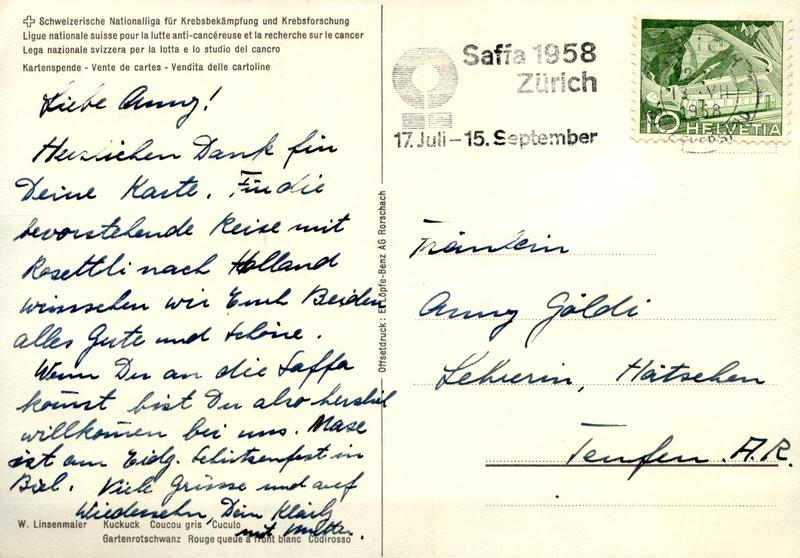 Schweizerische Nationalliga für Krebsbekämpfung und Krebsforschung
Ligue nationale suisse pour la lutte anti-cancéreuse et la recherche sur le cancer
Lega nazionale svizzera per la lotta e lo studio del cancro
Kartenspende - Vente de cartes - Vendita delle cartoline
Liebe Anny!
Herzlichen Dank für
Deine Karte. Für die
bevorstehende Reise mit
Rosettli nach Holland
wünschen wir Euch Beiden
alles Gute und Schöne.
Wenn Du an die Saffa
kommst bist Du also herzlich
willkommen bei uns. Max
ist am Eidg. Schützenfest in
Biel. Viele Grüsse und auf
Wiedersehn, Dein Klärly
mit Mutter.
W. Linsenmaier Kuckuck Coucou gris Cuculo
Gartenrotschwanz Rouge queue à front blanc Codirosso
Offsetdruck: E. Löpfe-Benz AG Rorschach
Saffa 1958
Zürich
17. Juli - 15. September
1958
10 HELVETIA
Fräulein
Anny Göldi
Lehrerin, Hätschen
Teufen A.R.